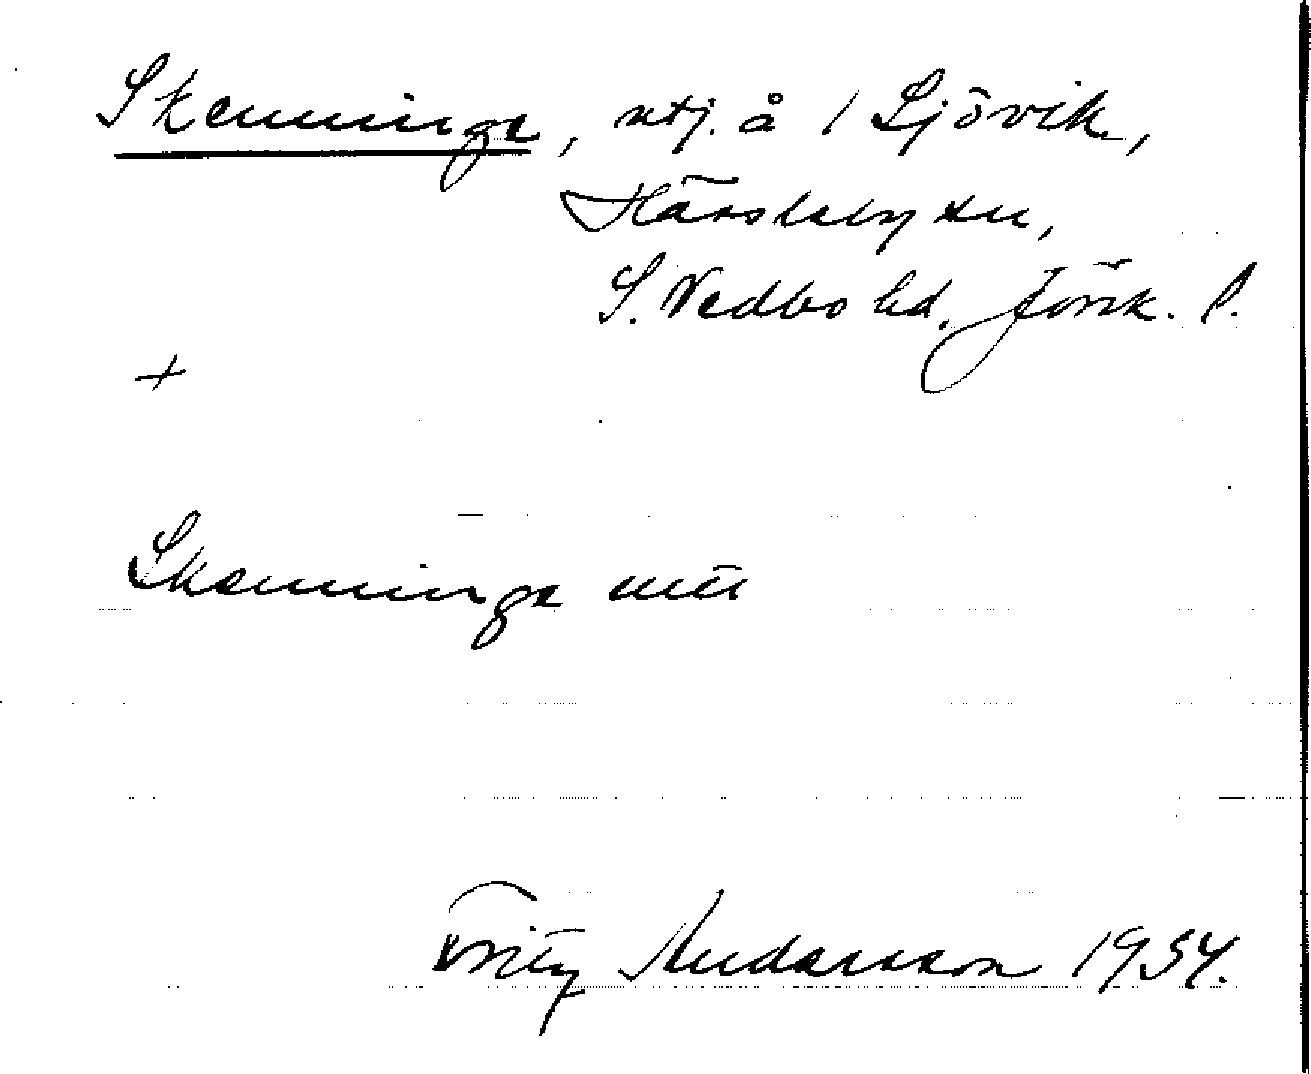 Skenninge, utj. å / Sjövik,
Haurida sn,
S. Vedbo hd. Jönk. l.
+
Skenninge
Fritz Andersson 1954.